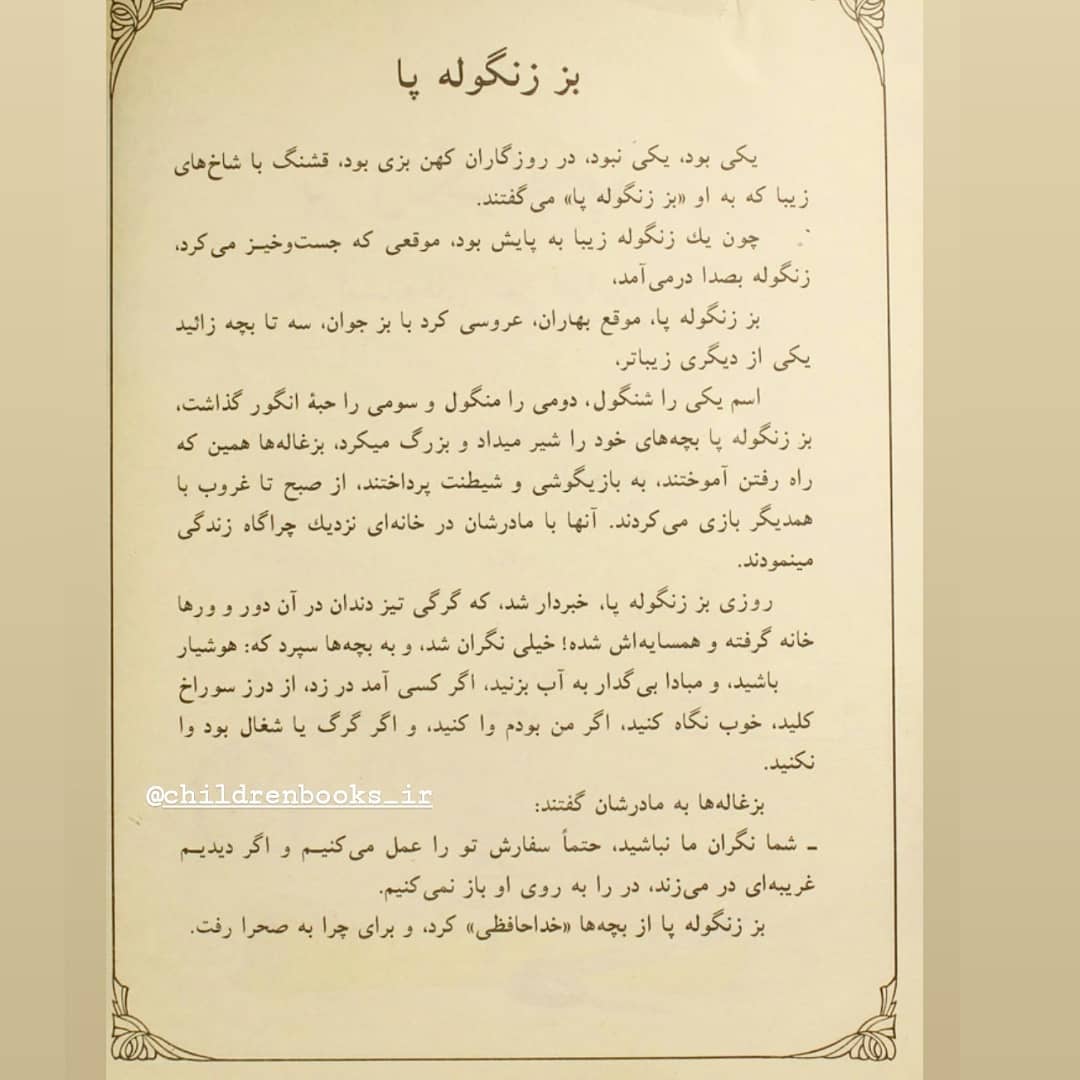 بز زنگوله پا
یکی بود، یکی نبود، در روزگاران کهن بزی بود، قشنگ با شاخ‌های
زیبا که به او «بز زنگوله پا» می‌گفتند.
چون یك زنگوله زیبا به پایش بود، موقعی که جست‌وخیز می‌کرد،
زنگوله بصدا درمی‌آمد،
بز زنگوله پا، موقع بهاران، عروسی کرد با بز جوان، سه تا بچه زائید
یکی از دیگری زیباتر،
اسم یکی را شنگول، دومی را منگول و سومی را حبهٔ انگور گذاشت،
بز زنگوله پا بچه‌های خود را شیر میداد و بزرگ میکرد، بزغاله‌ها همین که
راه رفتن آموختند، به بازیگوشی و شیطنت پرداختند، از صبح تا غروب با
همدیگر بازی می‌کردند. آنها با مادرشان در خانه‌ای نزدیك چراگاه زندگی
مینمودند.
روزی بز زنگوله پا، خبردار شد، که گرگی تیز دندان در آن دور و ورها
خانه گرفته و همسایه‌اش شده! خیلی نگران شد، و به بچه‌ها سپرد که: هوشیار
باشید، و مبادا بی‌گدار به آب بزنید، اگر کسی آمد در زد، از درز سوراخ
کلید، خوب نگاه کنید، اگر من بودم وا کنید، و اگر گرگ یا شغال بود وا
نکنید.
@childrenbooks_ir
بزغاله‌ها به مادرشان گفتند:
ـ شما نگران ما نباشید، حتماً سفارش تو را عمل می‌کنیم و اگر دیدیم
غریبه‌ای در می‌زند، در را به روی او باز نمی‌کنیم.
بز زنگوله پا از بچه‌ها «خداحافظی» کرد، و برای چرا به صحرا رفت.